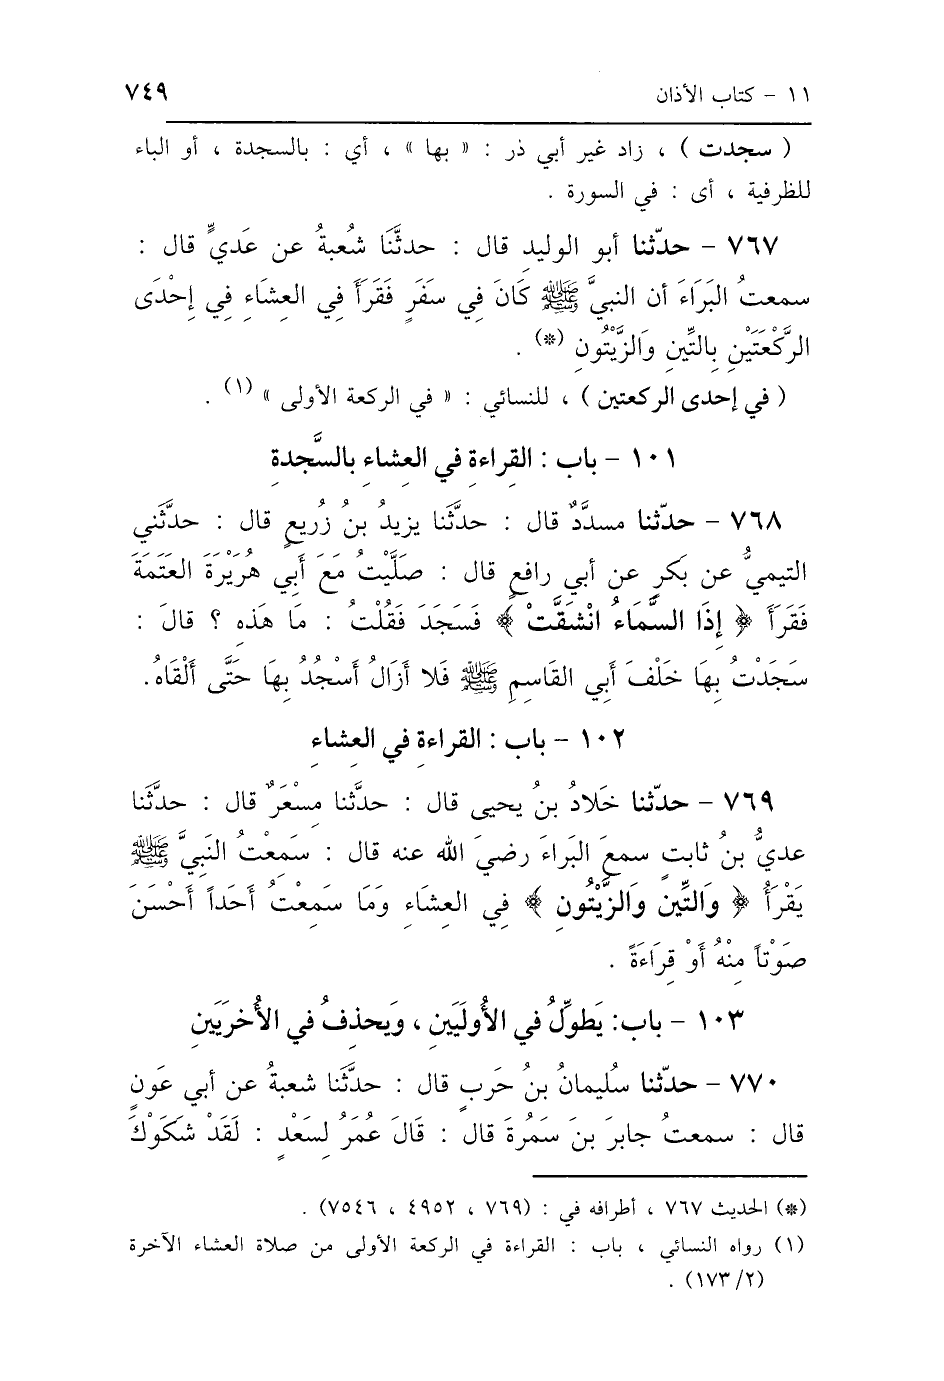 ١١ - كتاب الأذان ٧٤٩
( سجدت ) ، زاد غير أبي ذر : « بها » ، أي : بالسجدة ، أو الباء
للظرفية ، أى : في السورة .
٧٦٧ - حدّثنا أبو الوليدِ قال : حدثَّنَا شُعبةُ عن عَديٍّ قال :
سمعتُ البَرَاءَ أن النبيَّ ﷺ كَانَ فِي سفَرٍ فَقَرَأَ فِي العِشَاءِ فِي إِحْدَى
الرَّكْعَتَيْنِ بِالتِّينِ وَالزَّيْتُونِ (*) .
( في إحدى الركعتين ) ، للنسائي : « في الركعة الأولى » (١) .
١٠١ - باب : القِراءةِ في العِشاءِ بالسَّجدةِ
٧٦٨ - حدّثنا مسدَّدٌ قال : حدَّثَنا يزيدُ بنُ زُريعٍ قال : حدثَّني
التيميُّ عن بكرٍ عن أبي رافعٍ قال : صَلَّيْتُ مَعَ أَبِي هُرَيْرَةَ العَتَمَةَ
فَقَرَأَ ﴿ إِذَا السَّمَاءُ انْشَقَّتْ ﴾ فَسَجَدَ فَقُلْتُ : مَا هَذهِ ؟ قالَ :
سَجَدْتُ بِهَا خَلْفَ أَبِي القَاسِمِ ﷺ فَلا أزَالُ أَسْجُدُ بِهَا حَتَّى أَلْقَاهُ.
١٠٢ - باب : القراءةِ في العِشاءِ
٧٦٩ - حدّثنا خَلادُ بنُ يحيى قال : حدثَّنا مِسْعَرٌ قال : حدثَّنَا
عديُّ بنُ ثابتٍ سمعَ البَراءَ رضيَ الله عنه قال : سَمعْتُ النَبِيَّ ﷺ
يَقْرَأُ ﴿ وَالتِّينِ وَالزَّيْتُونِ ﴾ فِي العِشَاءِ وَمَا سَمِعْتُ أَحَداً أَحْسَنَ
صَوْتاً مِنْهُ أَوْ قِرَاءَةً .
١٠٣ - باب: يَطوِّلُ في الأُولَيَينِ ، وَيحذِفُ في الأُخرَيَينِ
٧٧٠ - حدّثنا سُليمانُ بنُ حَربٍ قال : حدَّثَنا شعبةُ عن أبي عَونٍ
قال : سمعتُ جابرَ بنَ سَمُرةَ قال : قَالَ عُمَرُ لِسَعْدٍ : لَقَدْ شكَوْكَ
(*) الحديث ٧٦٧ ، أطرافه في : (٧٦٩ ، ٤٩٥٢ ، ٧٥٤٦) .
(١) رواه النسائي ، باب : القراءة في الركعة الأولى من صلاة العشاء الآخرة
(٢/ ١٧٣) .